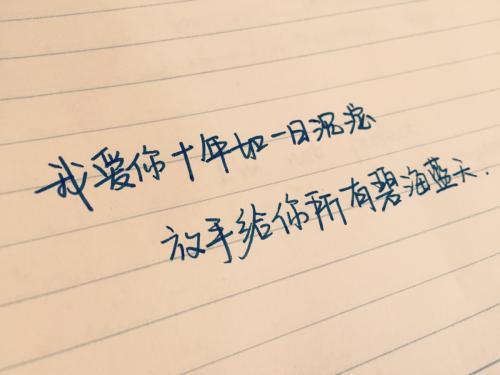 我爱你十年如一日沉淀
放手给你所有碧海蓝天.